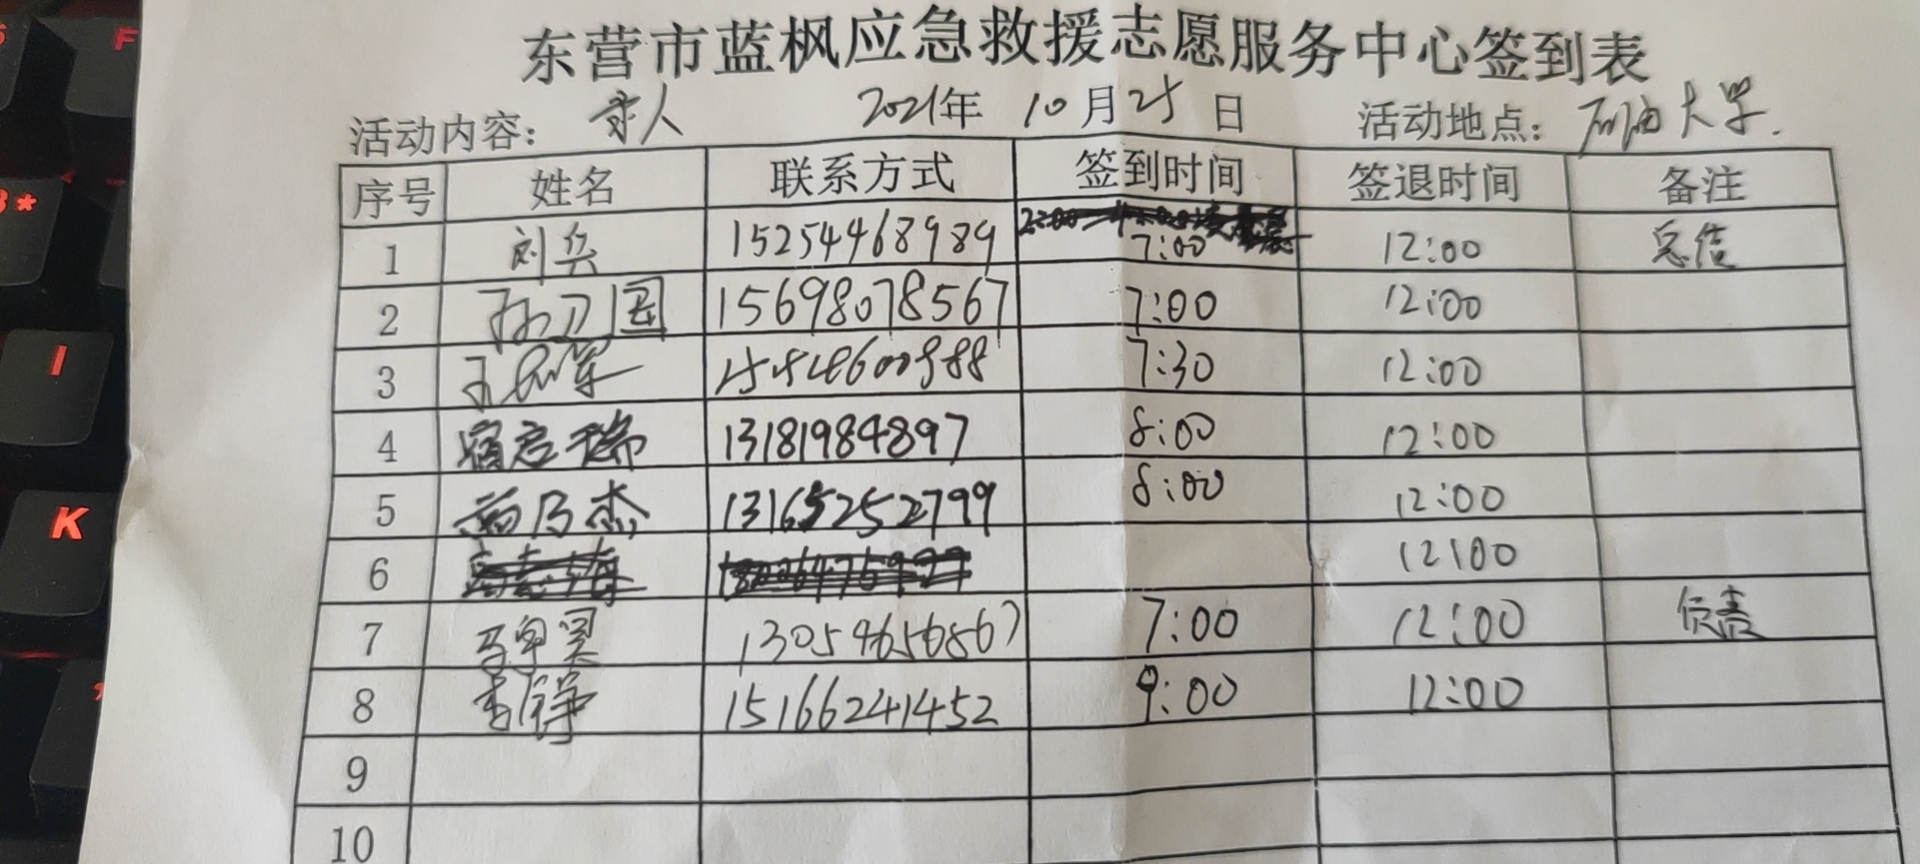 东营市蓝枫应急救援志愿服务中心签到表
活动内容： 寻人 2021年 10月25日 活动地点：石油大学.
序号 姓名 联系方式 签到时间 签退时间 备注
1 刘兵 15254468989 7:00 12:00 息信
2 孙卫国 15698078567 7:00 12:00
3 7:30 12:00
4 宿启瑞 13181984897 8:00 12:00
5 乃杰 13165252799 8:00 12:00
6 12:00
7 13054656867 7:00 12:00 负责
8 15166241452 9:00 12:00
9
10
F
I
K
*